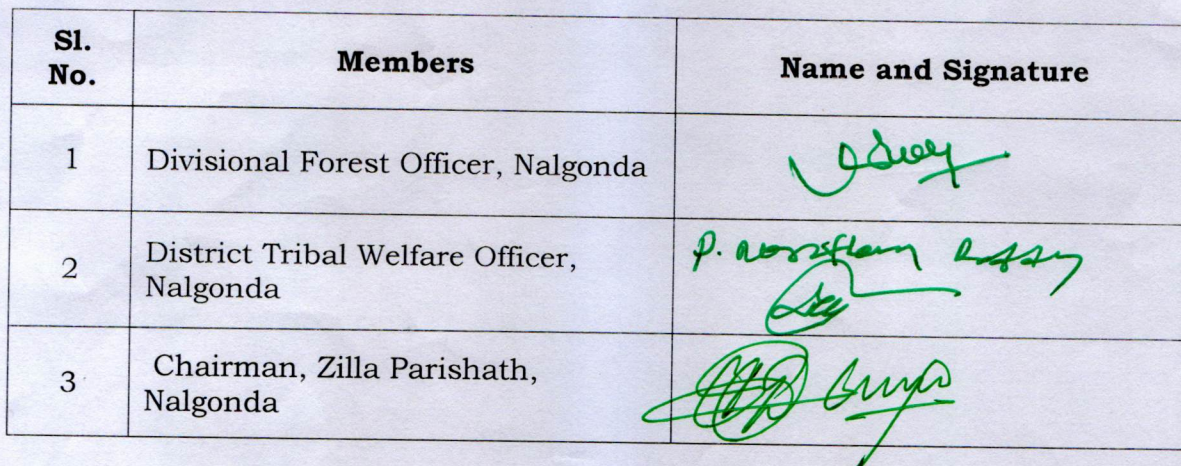 Sl.
No.
Members
Name and Signature
1
Divisional Forest Officer, Nalgonda
2
District Tribal Welfare Officer,
Nalgonda
P.
3
Chairman, Zilla Parishath,
Nalgonda